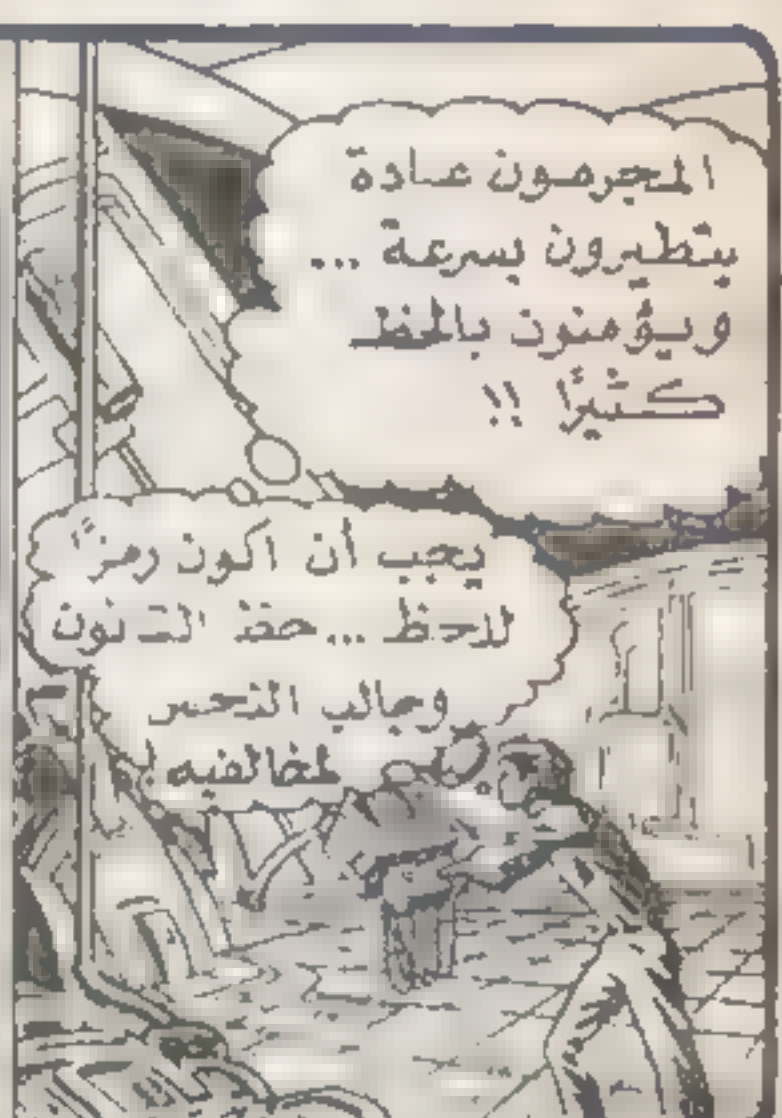 المجرمون عادة
يتطيرون بسرعة ...
ويؤمنون بالحظ
كثيرًا !!
يجب أن أكون رمزًا
للحظ ... حظ القانون
وجالب النحس
لمخالفيه !